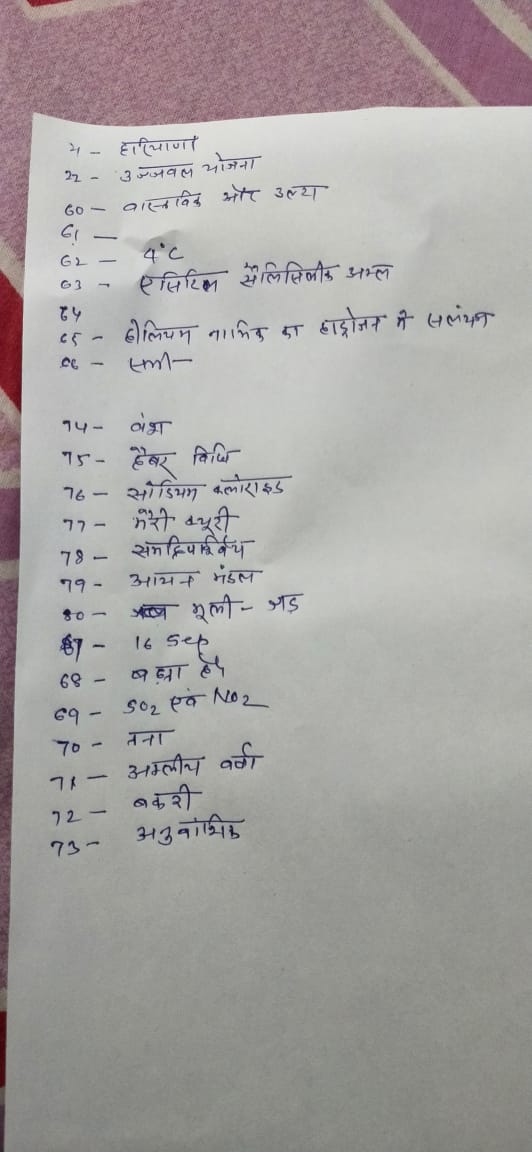 4 - हरियाणा
22 - उज्जवल योजना
60 - वास्तविक और उल्टा
61 -
62 - 4°C
63 - एसिटिल सैलिसिलीक अम्ल
64
65 - हीलियम नाभिक का हाइड्रोजन में सलंयन
66 - सभी -
74 - वंश
75 - हैबर विधि
76 - सोडियम क्लोराइड
77 - मैरी क्यूरी
78 - समद्विपार्श्विय
79 - आयन मंडल
80 - मूली - जड़
67 - 16 sep
68 - बढ़ा है
69 - SO2 एवं NO2
70 - तना
71 - अम्लीय वर्षा
72 - बकरी
73 - अनुवांशिक